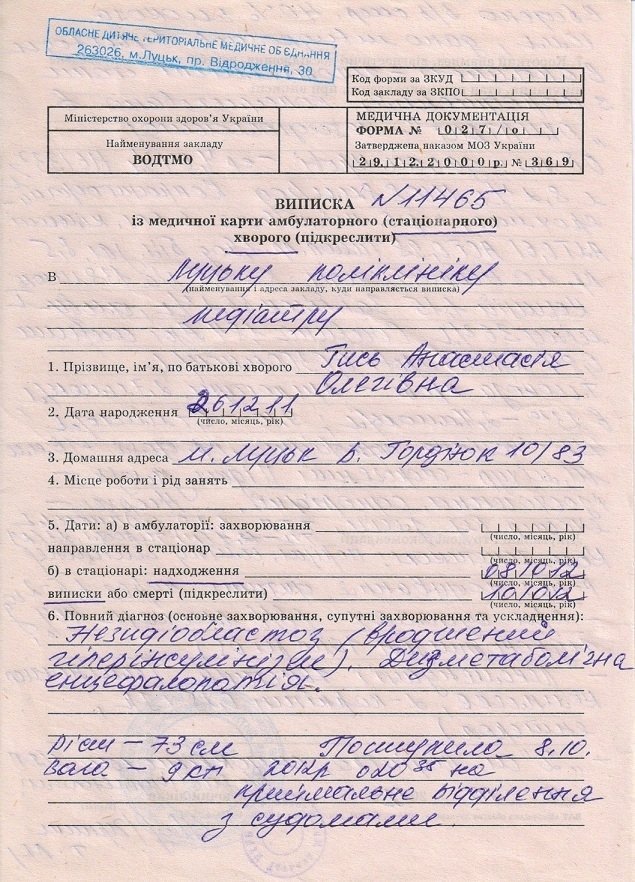 ОБЛАСНЕ ДИТЯЧЕ ТЕРИТОРІАЛЬНЕ МЕДИЧНЕ ОБ'ЄДНАННЯ
263026, м.Луцьк, пр. Відродження, 30
Код форми за ЗКУД
Код закладу за ЗКПО
Міністерство охорони здоров'я України
Найменування закладу
ВОДТМО
МЕДИЧНА ДОКУМЕНТАЦІЯ
ФОРМА № 027/о
Затверджена наказом МОЗ України
29.12.2000р. № 369
ВИПИСКА N 11465
із медичної карти амбулаторного (стаціонарного)
хворого (підкреслити)
В Луцьку поліклініку
(найменування і адреса закладу, куди направляється виписка)
педіатру
1. Прізвище, ім'я, по батькові хворого Гись Анастасія
Олегівна
2. Дата народження 261211
(число, місяць, рік)
3. Домашня адреса м. Луцьк б. Гордіюк 10/83
4. Місце роботи і рід занять
5. Дати: а) в амбулаторії: захворювання
(число, місяць, рік)
направлення в стаціонар
(число, місяць, рік)
б) в стаціонарі: надходження 081012
(число, місяць, рік)
виписки або смерті (підкреслити) 101012
(число, місяць, рік)
6. Повний діагноз (основне захворювання, супутні захворювання та ускладнення):
Незидіобластоз (вроджений
гіперінсулінізм). Дизметаболічна
енцефалопатія.
Ріст – 73 см Поступила 8.10.
Вага – 9 кг 2012р о 20 35 на
приймальне відділення
з судомами.